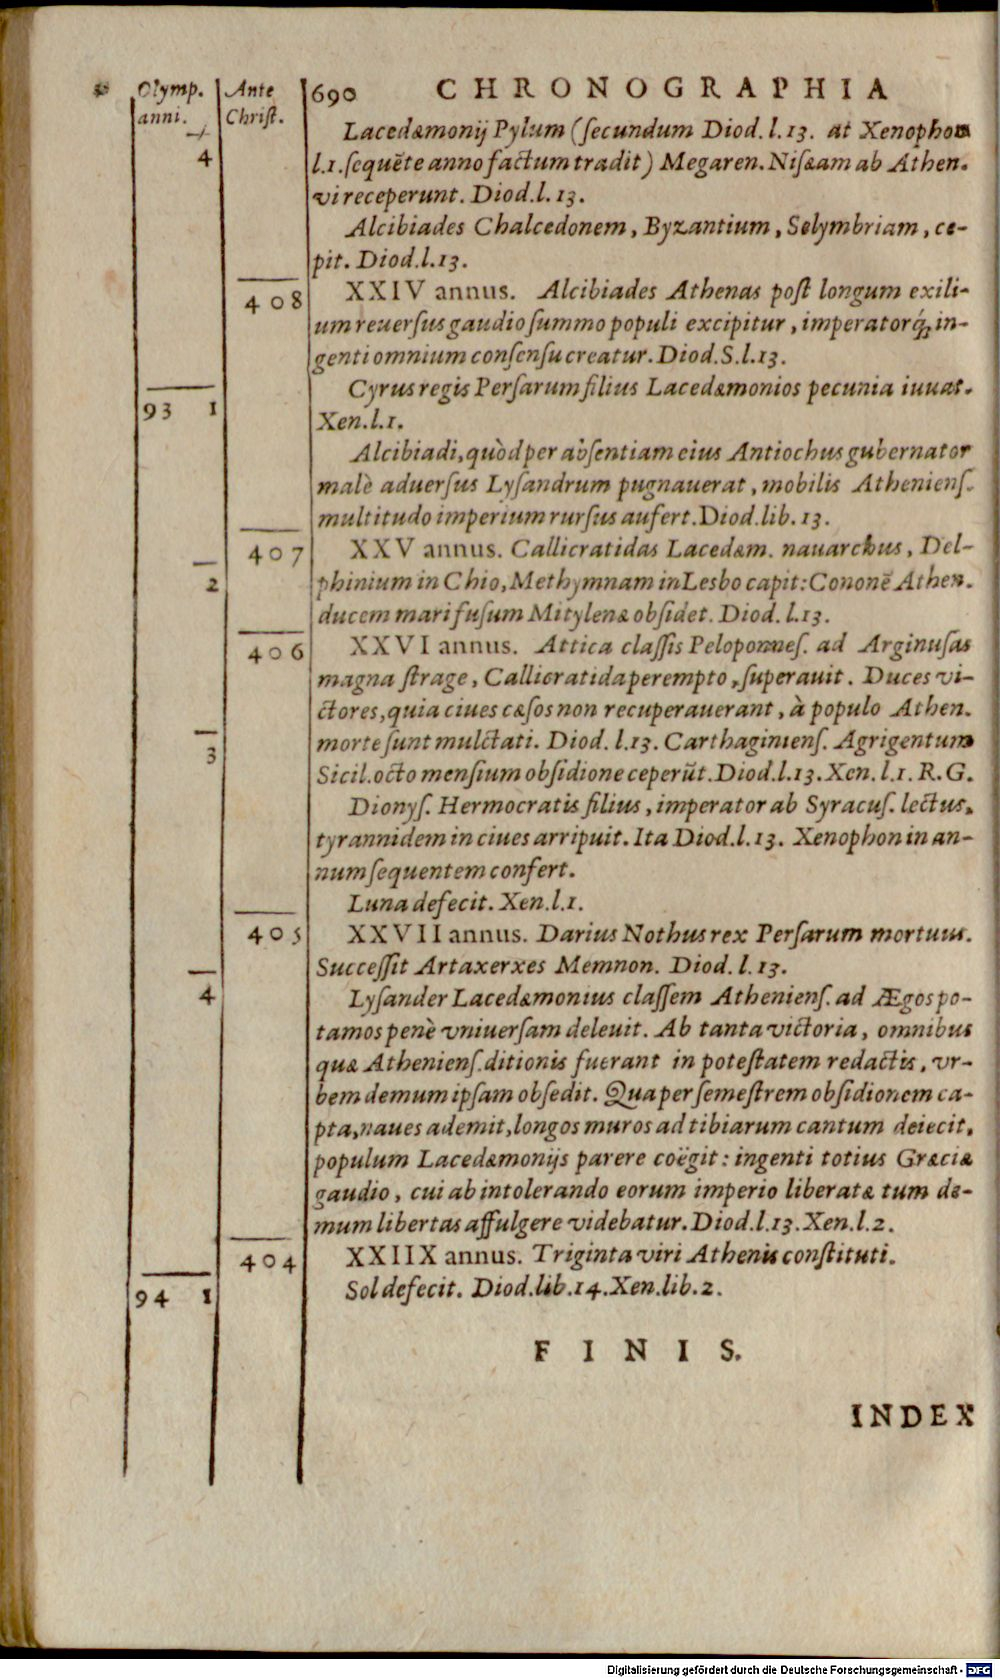 Olymp. anni.
Ante Christ.
690 CHRONOGRAPHIA
4
Lacedæmonij Pylum (ſecundum Diod. l. 13. at Xenophon
l. 1. ſequẽte anno factum tradit) Megaren. Niſæam ab Athen.
vi receperunt. Diod. l. 13.
Alcibiades Chalcedonem, Byzantium, Selymbriam, ce-
pit. Diod. l. 13.
408 XXIV annus. Alcibiades Athenas poſt longum exili-
um reuerſus gaudio ſummo populi excipitur, imperatorq́; in-
genti omnium conſenſu creatur. Diod. S. l. 13.
Cyrus regis Perſarum filius Lacedæmonios pecunia iuuat.
93 1 Xen. l. 1.
Alcibiadi, quòd per abſentiam eius Antiochus gubernator
malè aduerſus Lyſandrum pugnauerat, mobilis Athenienſ.
multitudo imperium rurſus aufert. Diod. lib. 13.
407 XXV annus. Callicratidas Lacedæm. nauarchus, Del-
2 phinium in Chio, Methymnam in Lesbo capit: Cononẽ Athen.
ducem mari fuſum Mitylenæ obſidet. Diod. l. 13.
406 XXVI annus. Attica claſſis Peloponneſ. ad Arginuſas
magna ſtrage, Callicratida perempto, ſuperauit. Duces vi-
ctores, quia ciues cæſos non recuperauerant, à populo Athen.
3 morte ſunt mulctati. Diod. l. 13. Carthaginienſ. Agrigentum
Sicil. octo menſium obſidione ceperũt. Diod. l. 13. Xen. l. 1. R. G.
Dionyſ. Hermocratis filius, imperator ab Syracuſ. lectus,
tyrannidem in ciues arripuit. Ita Diod. l. 13. Xenophon in an-
num ſequentem confert.
Luna defecit. Xen. l. 1.
405 XXVII annus. Darius Nothus rex Perſarum mortuus.
Succeſſit Artaxerxes Memnon. Diod. l. 13.
4 Lyſander Lacedæmonius claſſem Athenienſ. ad Ægos po-
tamos penè vniuerſam deleuit. Ab tanta victoria, omnibus
quæ Athenienſ. ditionis fuerant in poteſtatem redactis, vr-
bem demum ipſam obſedit. Qua per ſemeſtrem obſidionem ca-
pta, naues ademit, longos muros ad tibiarum cantum deiecit,
populum Lacedæmonijs parere coëgit: ingenti totius Græciæ
gaudio, cui ab intolerando eorum imperio liberatæ tum de-
mum libertas affulgere videbatur. Diod. l. 13. Xen. l. 2.
404 XXIIX annus. Triginta viri Athenis conſtituti.
94 1 Sol defecit. Diod. lib. 14. Xen. lib. 2.
FINIS.
INDEX
Digitalisierung gefördert durch die Deutsche Forschungsgemeinschaft - DFG